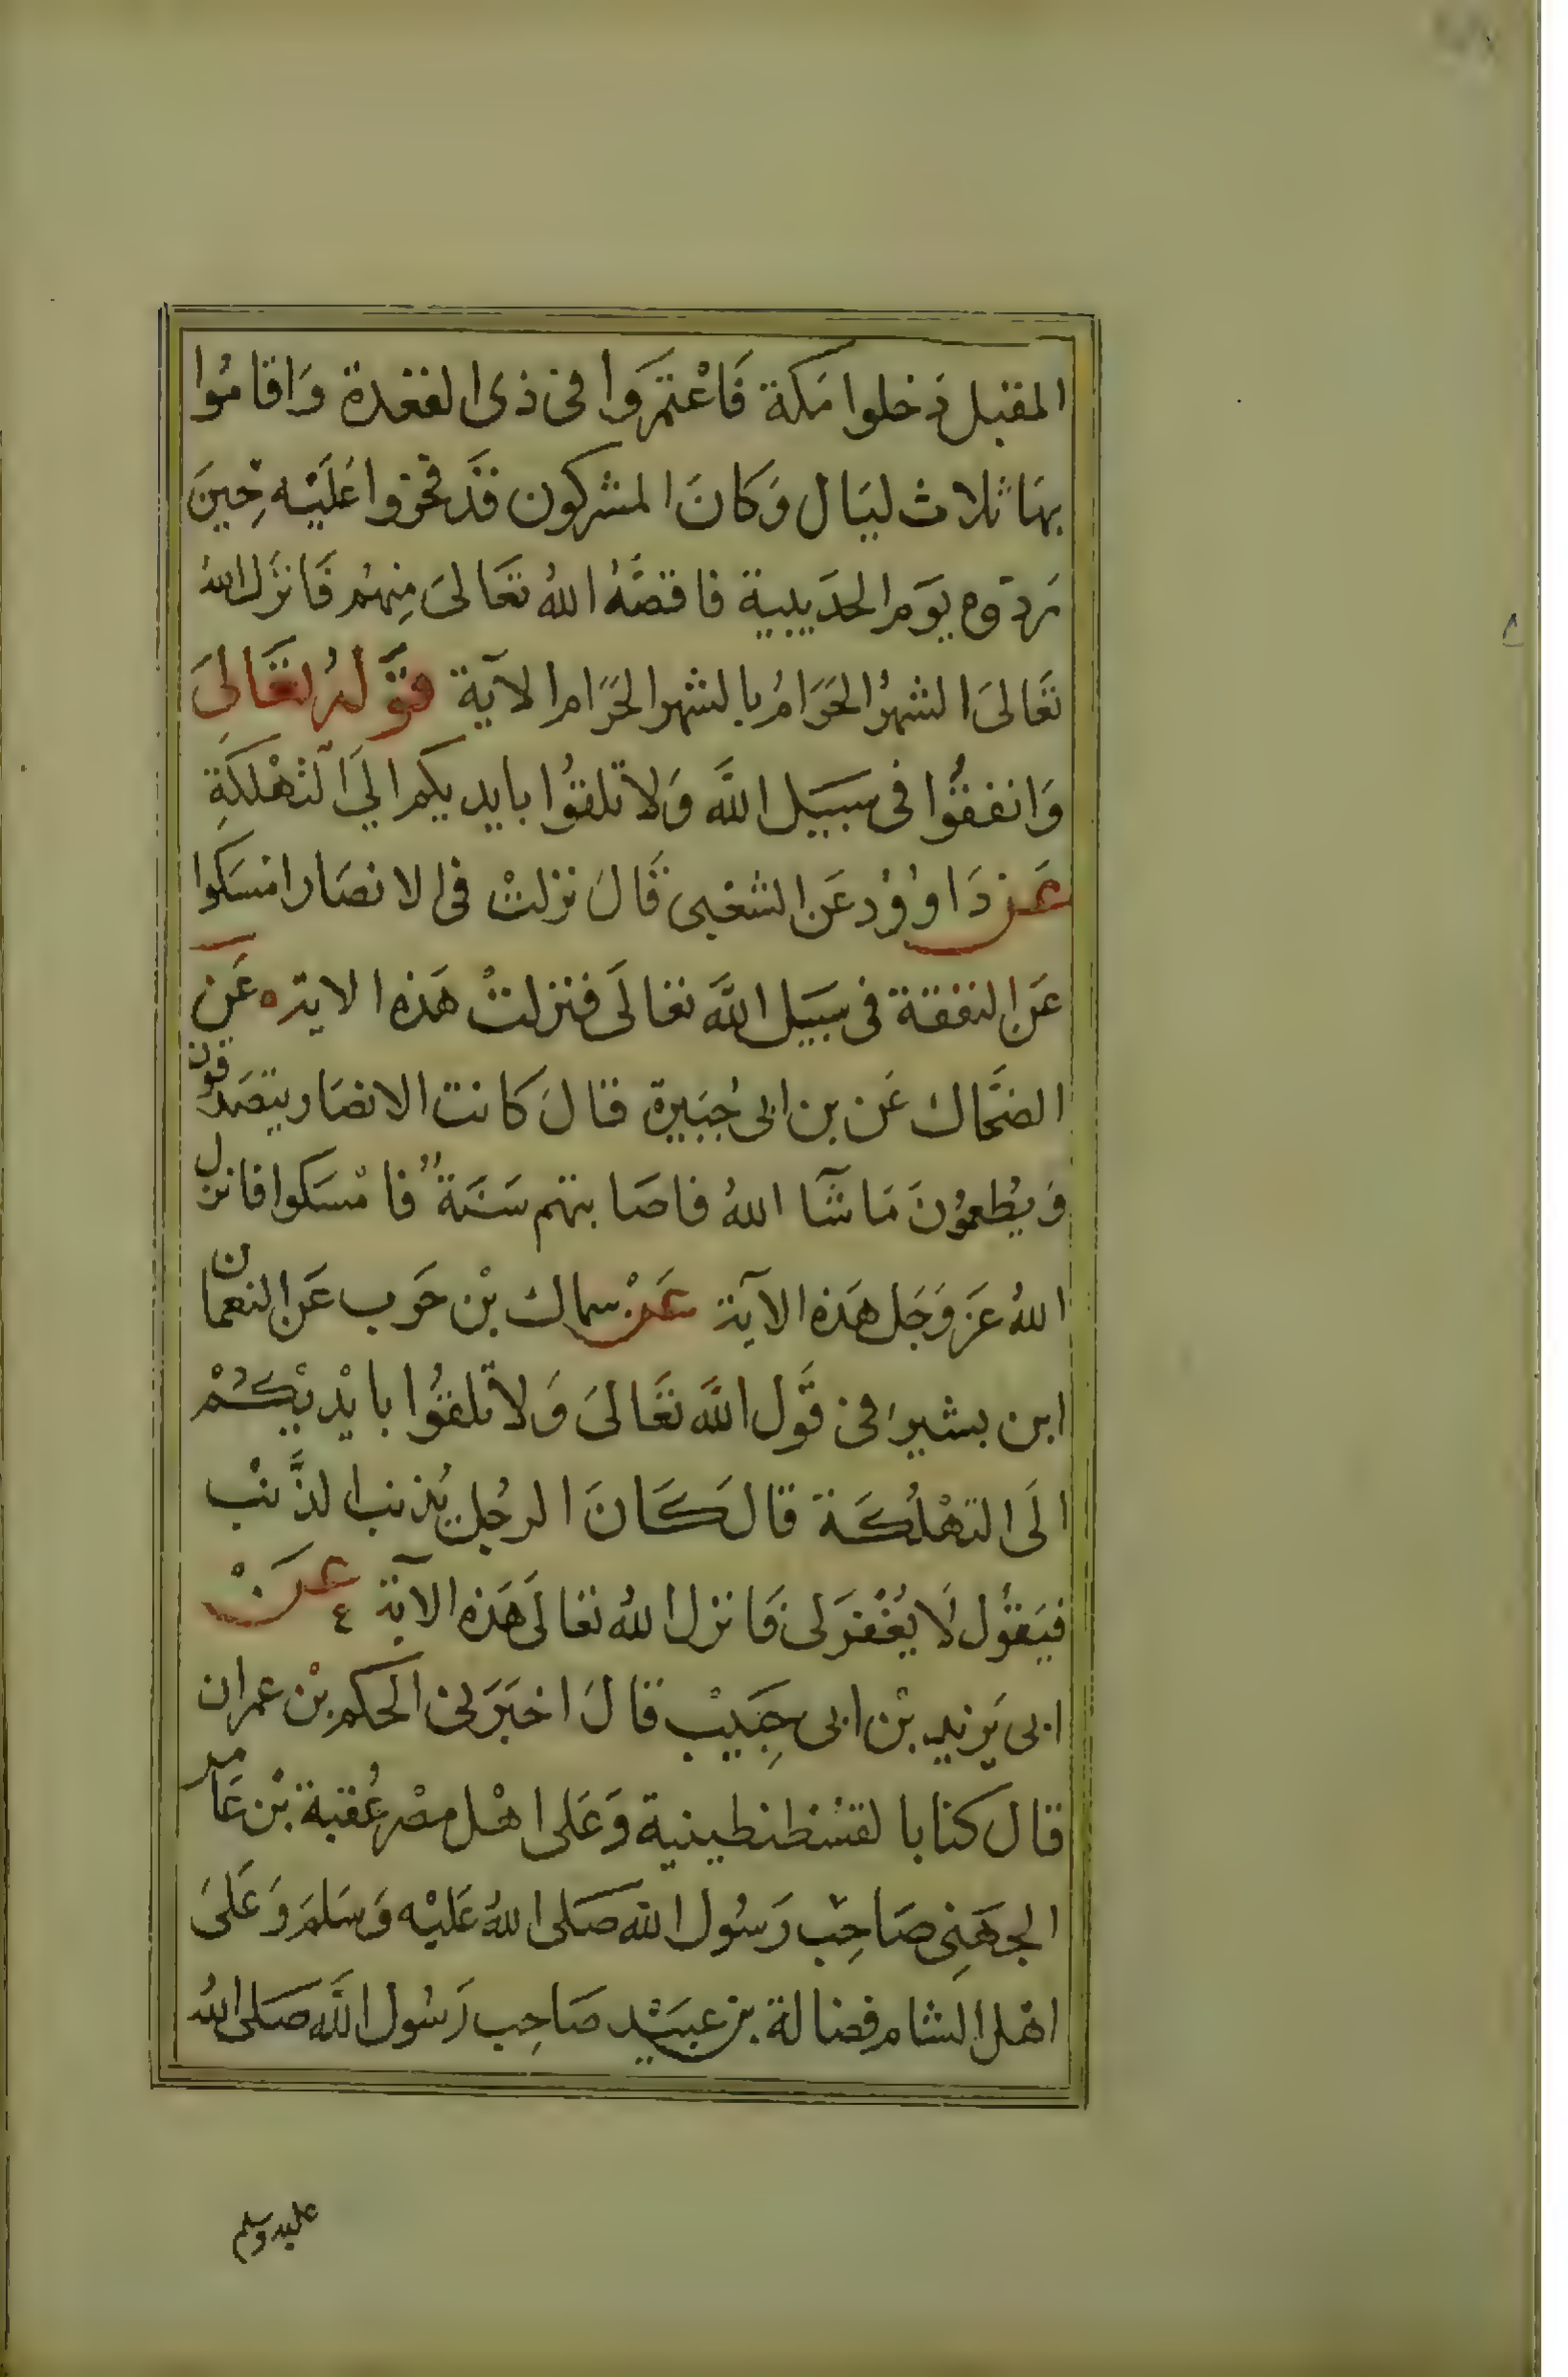 المقبل دَخلوا مَكة فَاعْتَمَروا فى ذى القعدة وَاقامُوا
بهَا ثلاث ليَال وَكانَ المشركون قَد فخروا عَلَيْه حِينَ
رَدّوه يوَم الحدَيبية فاقصَّهُ اللهُ تعَالىَ مِنهُم فَانزَل الله
تعَالىَ الشهرُ الحَرَامُ بالشهر الحَرَام الآية قوَله تعَالىَ
وَانفقُوا فى سبيَل اللَّه وَلا تلقوُا بايديكم الَي التهْلكَةِ
عَن دَاووُد عَن الشعبى قَالَ نزلتْ فى الانصَار امسَكوا
عَن النفقة فى سبيَل اللَّه تعَالَى فنزلتْ هَذه الاية ه عَن
الضحَّاك عَن بن ابى جُبَيرة قَالَ كانت الانصَار يتصَدقون
وَيُطعموُنَ مَا شآا اللهُ فاصَابتهم سَنَةٌ فامْسَكوا فانزل
اللهُ عَز وَجَل هَذه الآية عَنْ سماك بْن حَرب عَن النعمان
ابن بشير فى قَول اللَّه تعَالىَ وَلا تلقوُا بايْديْكُمْ
الَى التهْلُكَة قال كَانَ الرجُل يُذنب الذَّنب
فيَقوُل لَا يُغْفرَ لى فَانزل اللهُ تعَالَى هَذه الآية ٤ عَنْ
ابى يَزيد بْن ابى حِبَيبْ قالَ اخبَرَنى الحكم بْن عمران
قال كنا بالقسُطنطينية وَعَلى اهْل مصْر عُقبة بْن عَامر
الجهَنِى صَاحِبْ رَسُول الله صَلى اللهُ عَليْه وَسَلمَ وَعَلىَ
اهْل الشام فضالة بن عبيَد صَاحِب رَسُول اللَّه صَلى اللهُ
عليه وسلم